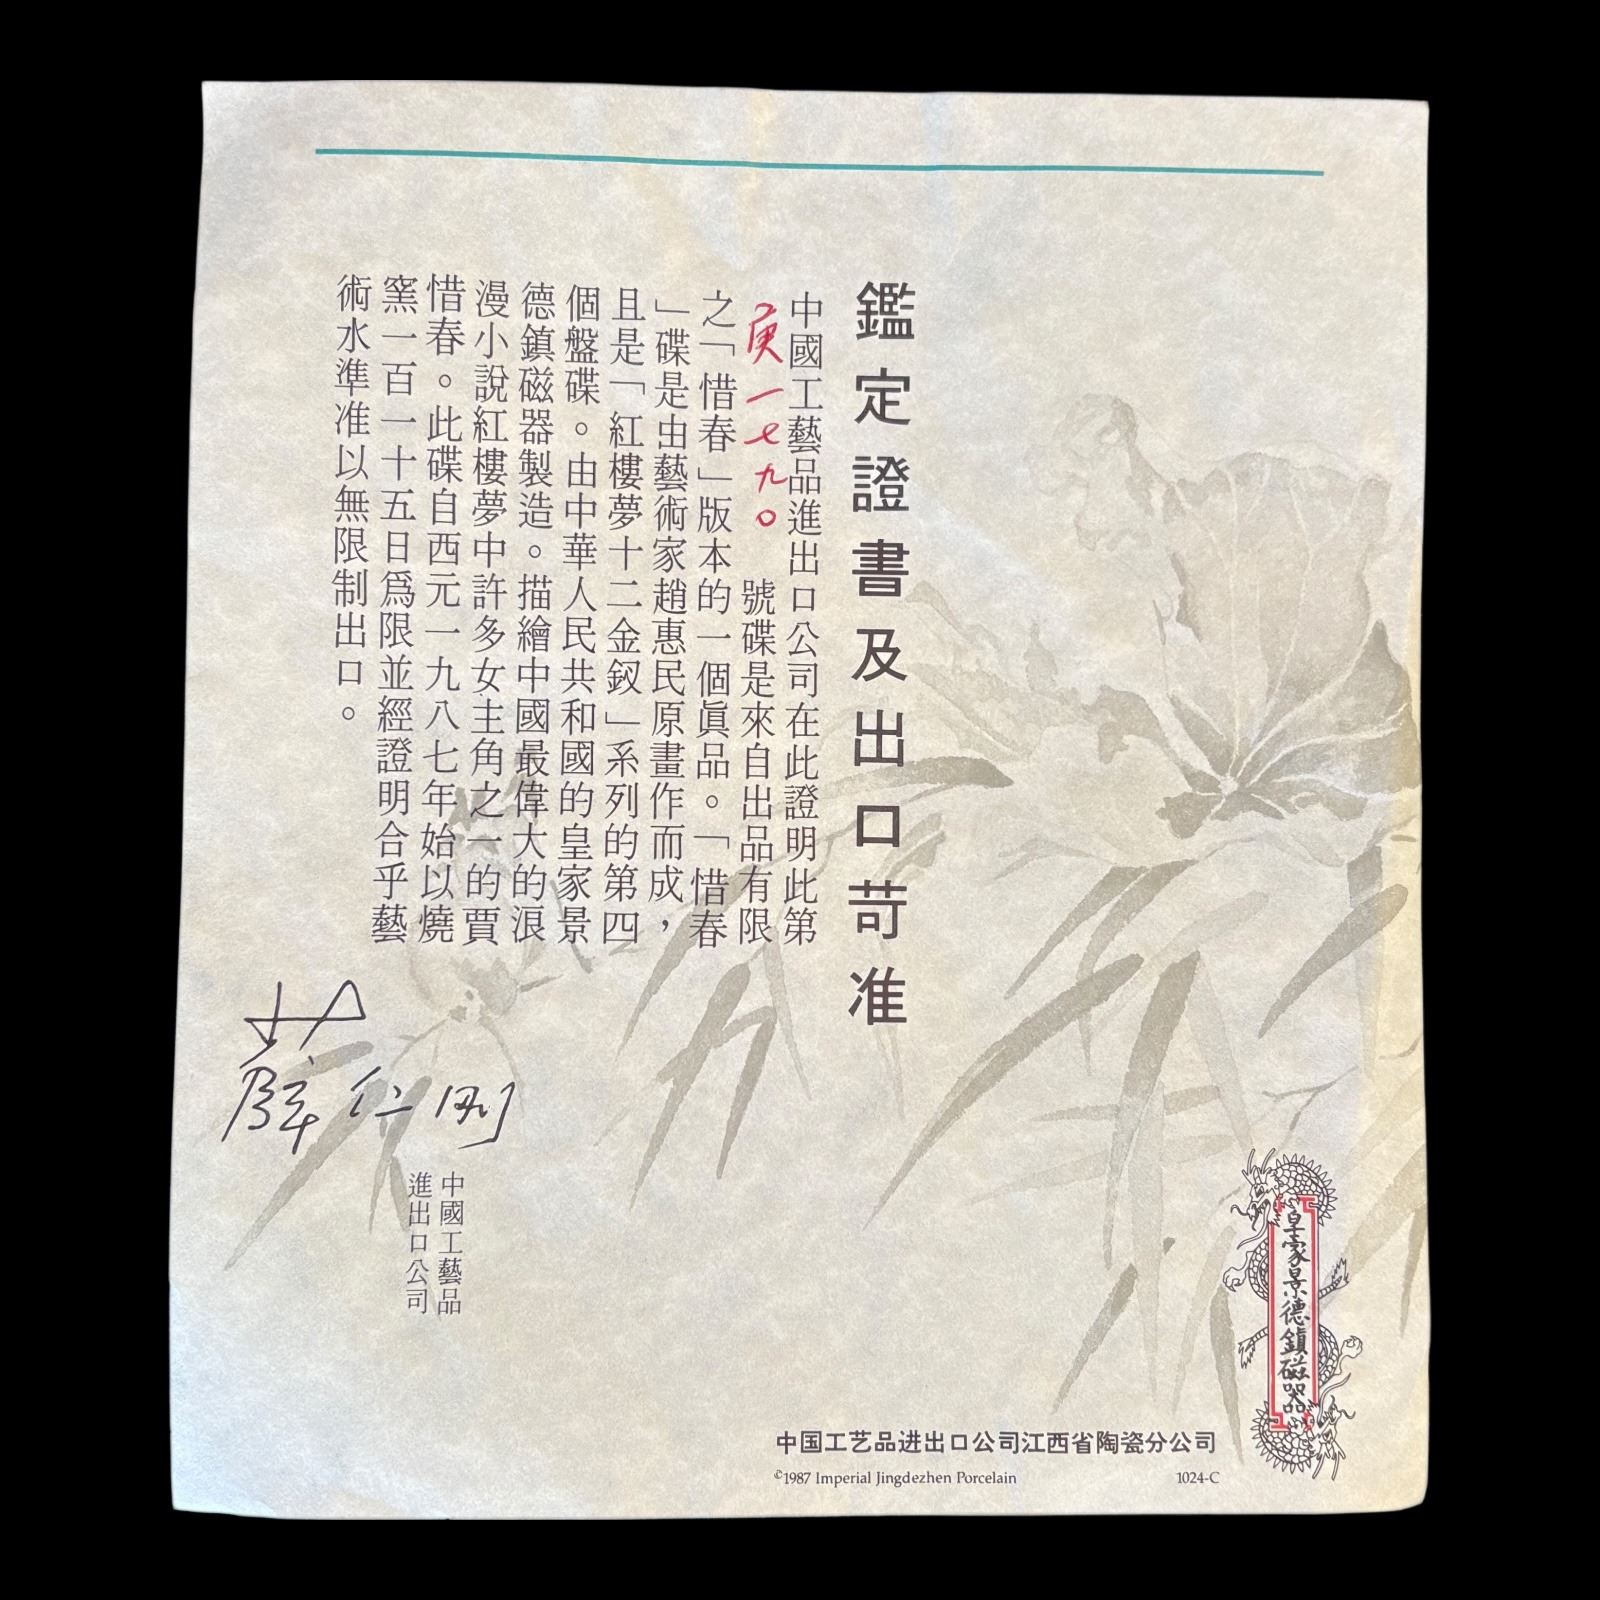 鑑定證書及出口苛准
中國工藝品進出口公司在此證明此第
庚一七九〇 號碟是來自出品有限
之「惜春」版本的一個眞品。「惜春
」碟是由藝術家趙惠民原畫作而成，
且是「紅樓夢十二金釵」系列的第四
個盤碟。由中華人民共和國的皇家景
德鎮磁器製造。描繪中國最偉大的浪
漫小說紅樓夢中許多女主角之一的賈
惜春。此碟自西元一九八七年始以燒
窯一百一十五日爲限並經證明合乎藝
術水準准以無限制出口。
薛仁刚
中國工藝品
進出口公司
皇家景德鎮磁器
中国工艺品进出口公司江西省陶瓷分公司
©1987 Imperial Jingdezhen Porcelain 1024-C